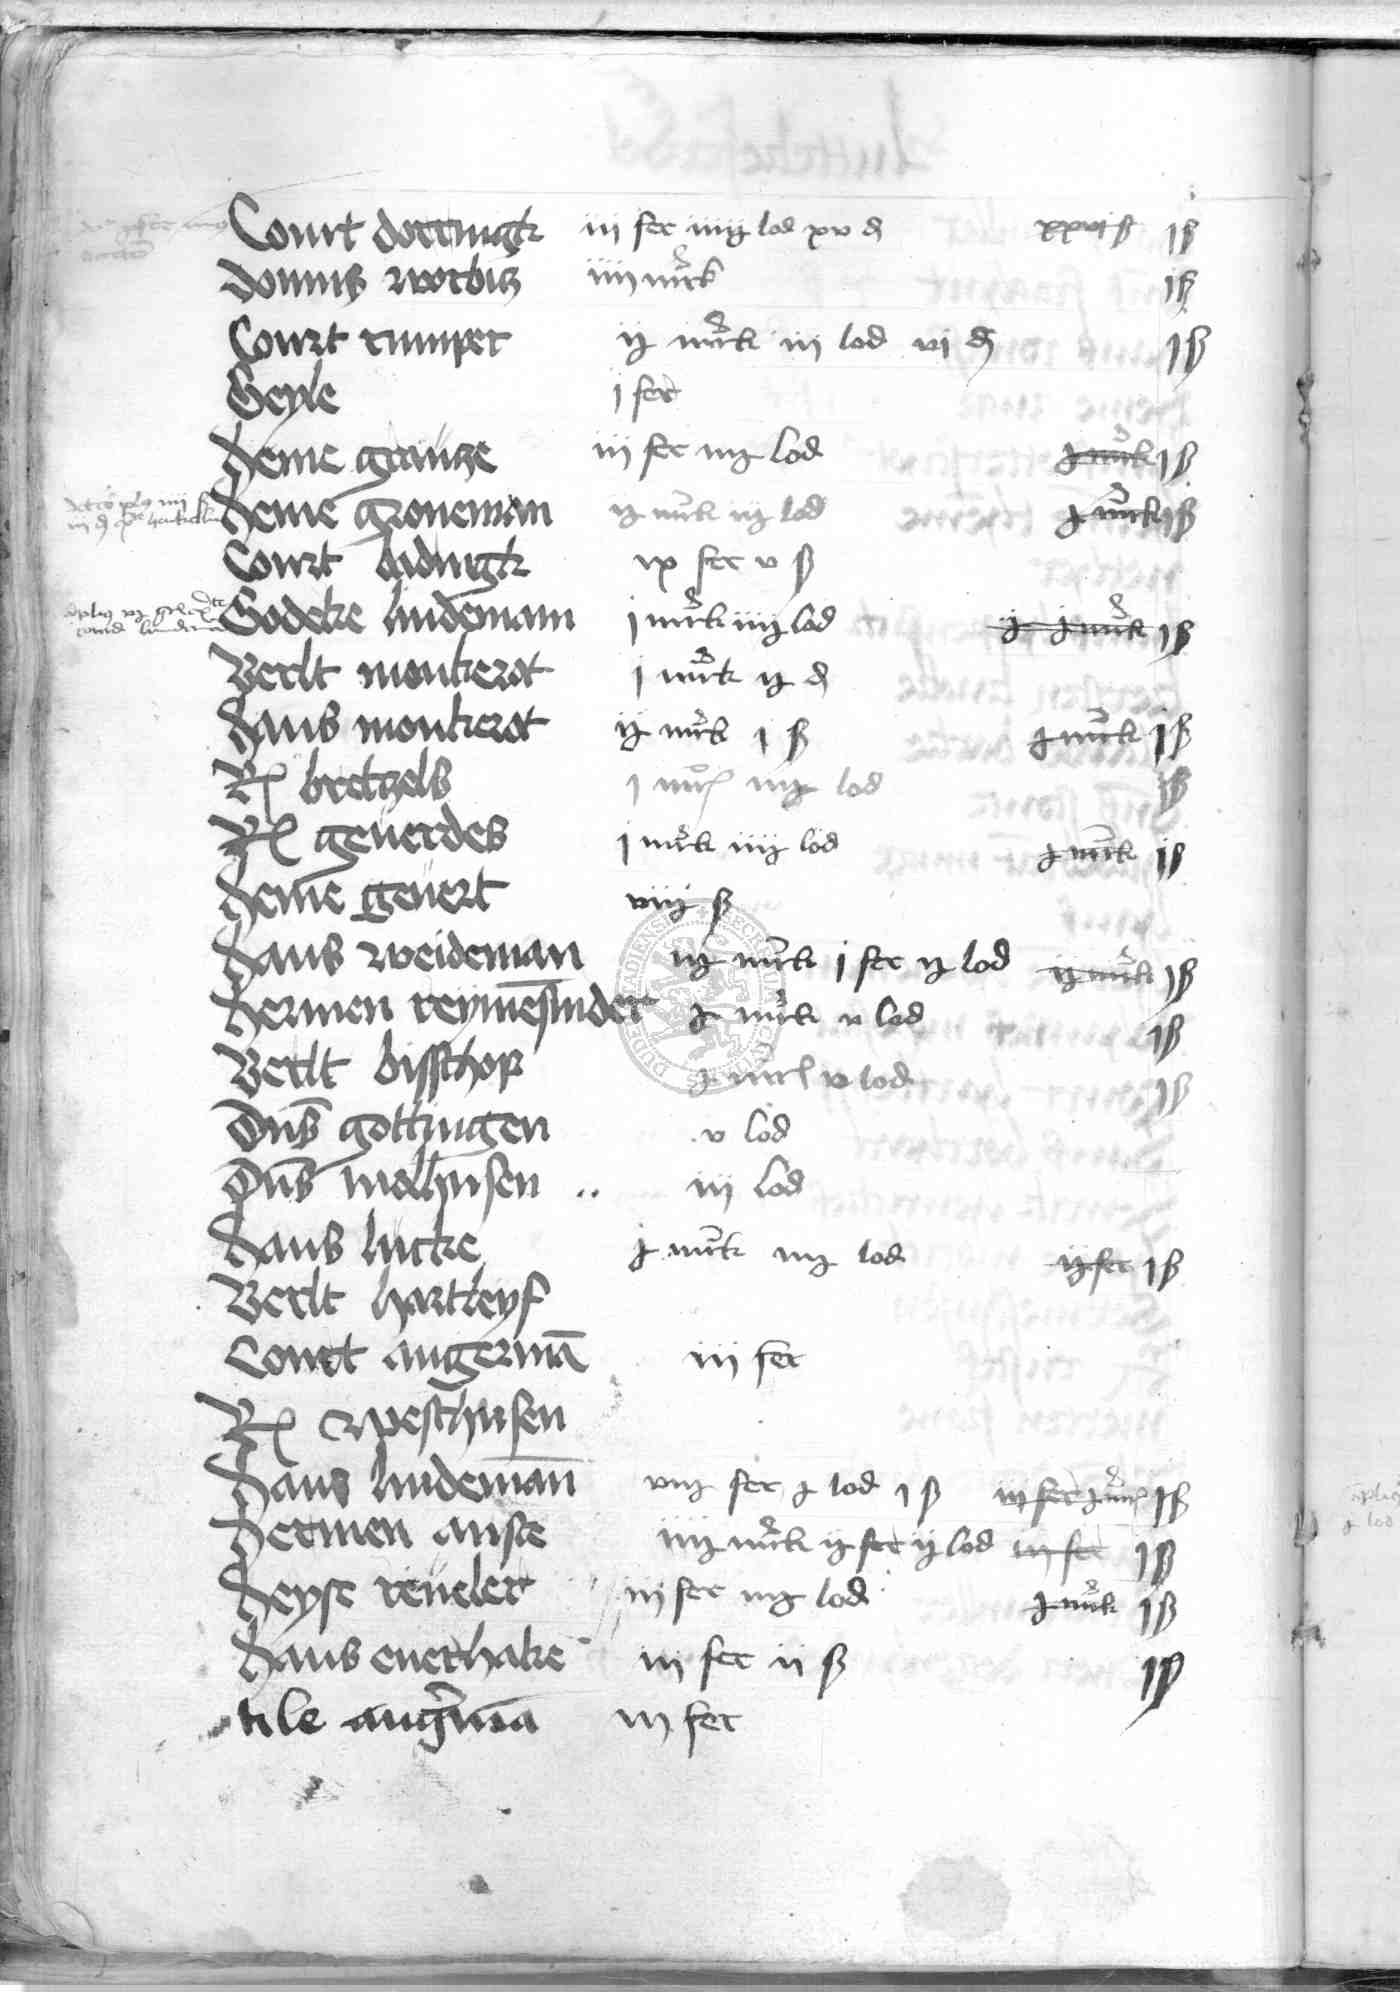 Court dorringk iii fer iiiij lod xv d xxvi ß i ß
domus worbis iiii mark i ß
Court rumper ij mark iii lod vi d i ß
Geyle i fer
Heine grauze iii fer iiij lod j mark i ß
Heine groneman ij mark iij lod j mark i ß
Court didingk ix fer v ß
Godeke lindeman i mark iiiij lod j mark i ß
Bertt monkerot i mark ij d
Hans monkerot ij mark i ß j mark i ß
bretzels i mark iiij lod i ß
geuerdes i mark iiiij lod j mark i ß
Heine geuert viiij ß
Hans weideman iij mark i fer ij lod ij mark i ß
Hermen reymensnider j mark v lod i ß
Bertt bisschop j mark v lod i ß
Dns gottingen v lod
Dns molhusen iii lod
Hans lucke j mark iiij lod ij fer i ß
Bertt hartleyf
Court angerman iii fer
Westhusen
Hans lindeman viij fer j lod i ß iii fer j mark i ß
Hermen anse iiiij mark ij fer ij lod iij fer i ß
Heyse reueler iii fer iiij lod j mark i ß
Hans euerhake iii fer ii ß i ß
tile angerman iii fer